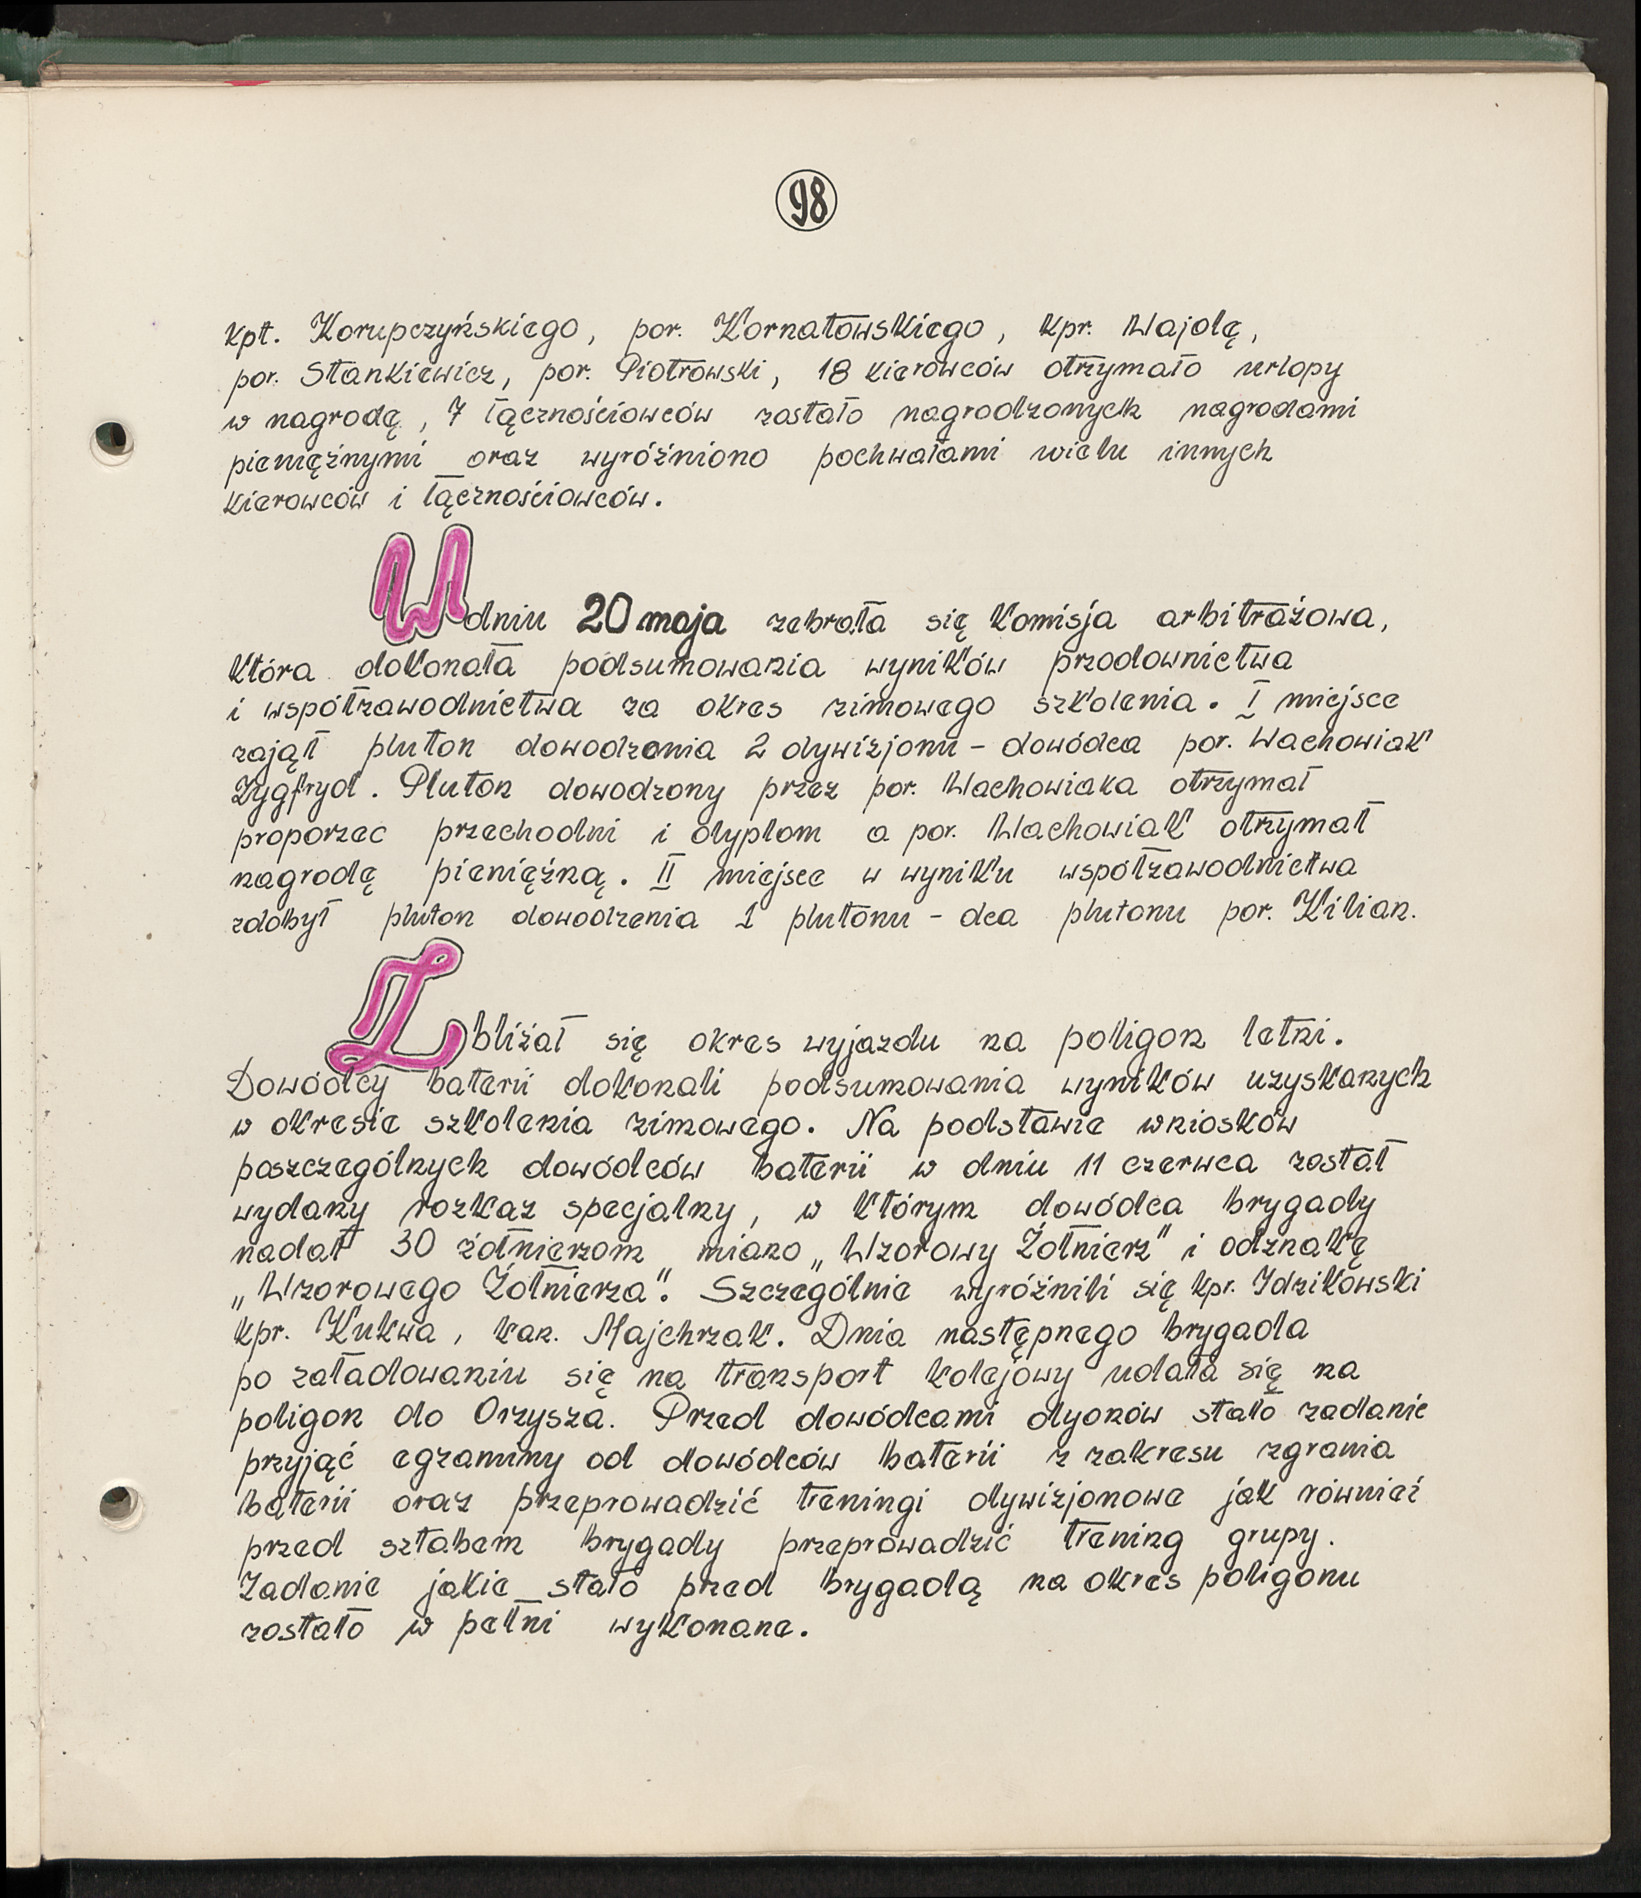 98
kpt. Korupczyńskiego, por. Kornatowskiego, kpr. Wajolę,
por. Stankiewicz, por. Piotrowski, 18 kierowców otrzymało urlopy
w nagrodę, 7 łącznościowców zostało nagrodzonych nagrodami
pieniężnymi oraz wyróżniono pochwałami wielu innych
kierowców i łącznościowców.
W dniu 20 maja zebrała się komisja arbitrażowa,
która dokonała podsumowania wyników przodownictwa
i współzawodnictwa za okres zimowego szkolenia. I miejsce
zajął pluton dowodzenia 2 dywizjonu - dowódca por. Wachowiak
Zygfryd. Pluton dowodzony przez por. Wachowiaka otrzymał
proporzec przechodni i dyplom a por. Wachowiak otrzymał
nagrodę pieniężną. II miejsce w wyniku współzawodnictwa
zdobył pluton dowodzenia 1 plutonu - dca plutonu por. Kilian.
Zbliżał się okres wyjazdu na poligon letni.
Dowódcy baterii dokonali podsumowania wyników uzyskanych
w okresie szkolenia zimowego. Na podstawie wniosków
poszczególnych dowódców baterii w dniu 11 czerwca został
wydany rozkaz specjalny, w którym dowódca brygady
nadał 30 żołnierzom miano „Wzorowy Żołnierz" i odznakę
„Wzorowego Żołnierza". Szczególnie wyróżnili się kpr. Idzikowski
kpr. Kukwa, kan. Majchrzak. Dnia następnego brygada
po załadowaniu się na transport kolejowy udała się na
poligon do Orzysza. Przed dowódcami dyonów stało zadanie
przyjąć egzaminy od dowódców baterii z zakresu zgrania
baterii oraz przeprowadzić treningi dywizjonowe jak również
przed sztabem brygady przeprowadzić trening grupy.
Zadanie jakie stało przed brygadą na okres poligonu
zostało w pełni wykonane.